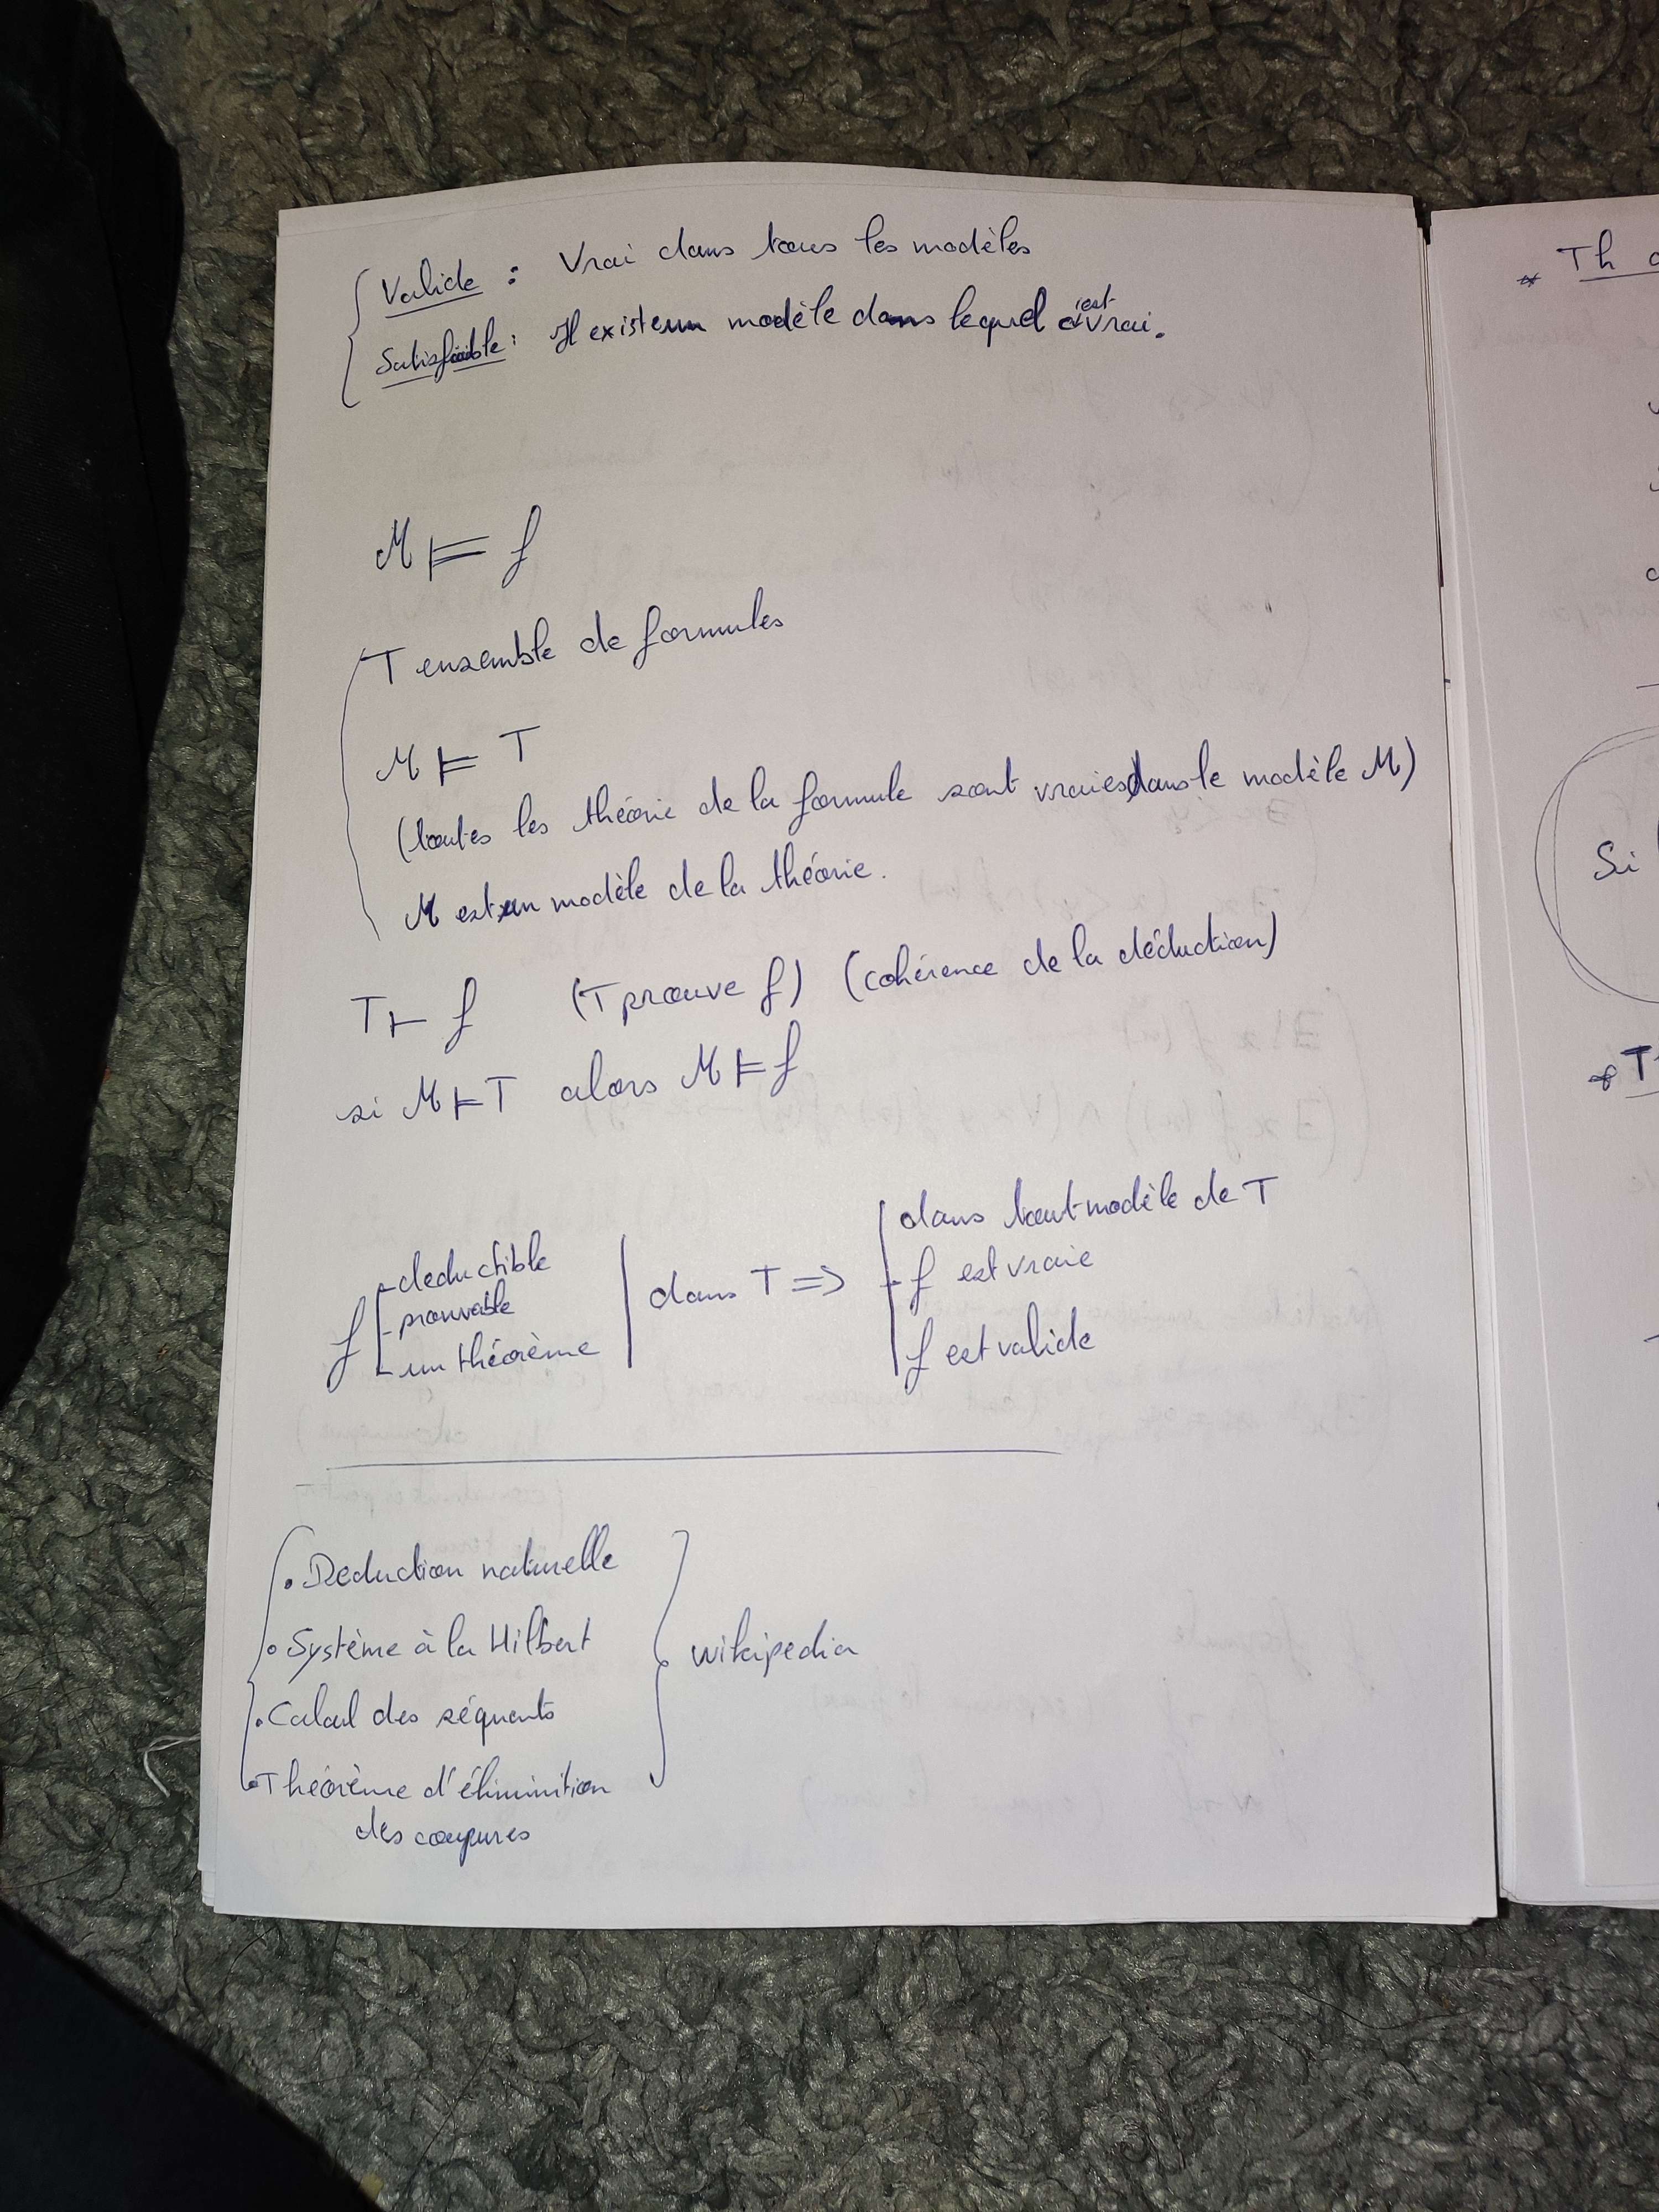 Valide : Vrai dans tous les modèles
Satisfiable : Il existe un modèle dans lequel c'est vrai.
M ⊨ f
T ensemble de formules
M ⊨ T
(toutes les théorie de la formule sont vraies dans le modèle M)
M est un modèle de la théorie.
T ⊢ f (T prouve f) (cohérence de la déduction)
si M ⊨ T alors M ⊨ f
f
- deductible
- prouvable
- un théorème
dans T ⇒
dans tout modèle de T
- f est vraie
f est valide
• Deduction naturelle
• Système à la Hilbert
• Calcul des séquents
• Théorème d'élimination
des coupures
wikipedia
* Th
Si
* T